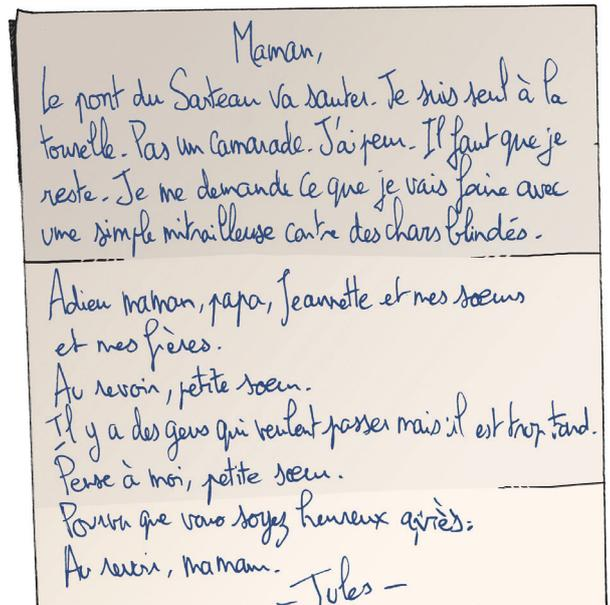 Maman,
Le pont du Sarteau va sauter. Je suis seul à la
tourelle. Pas un camarade. J'ai peur. Il faut que je
reste. Je me demande ce que je vais faire avec
une simple mitrailleuse contre des chars blindés.
Adieu maman, papa, Jeannette et mes sœurs
et mes frères.
Au revoir, petite sœur.
Il y a des gens qui veulent passer mais il est trop tard.
Pense à moi, petite sœur.
Pourvu que vous soyez heureux après.
Au revoir, maman.
– Jules –